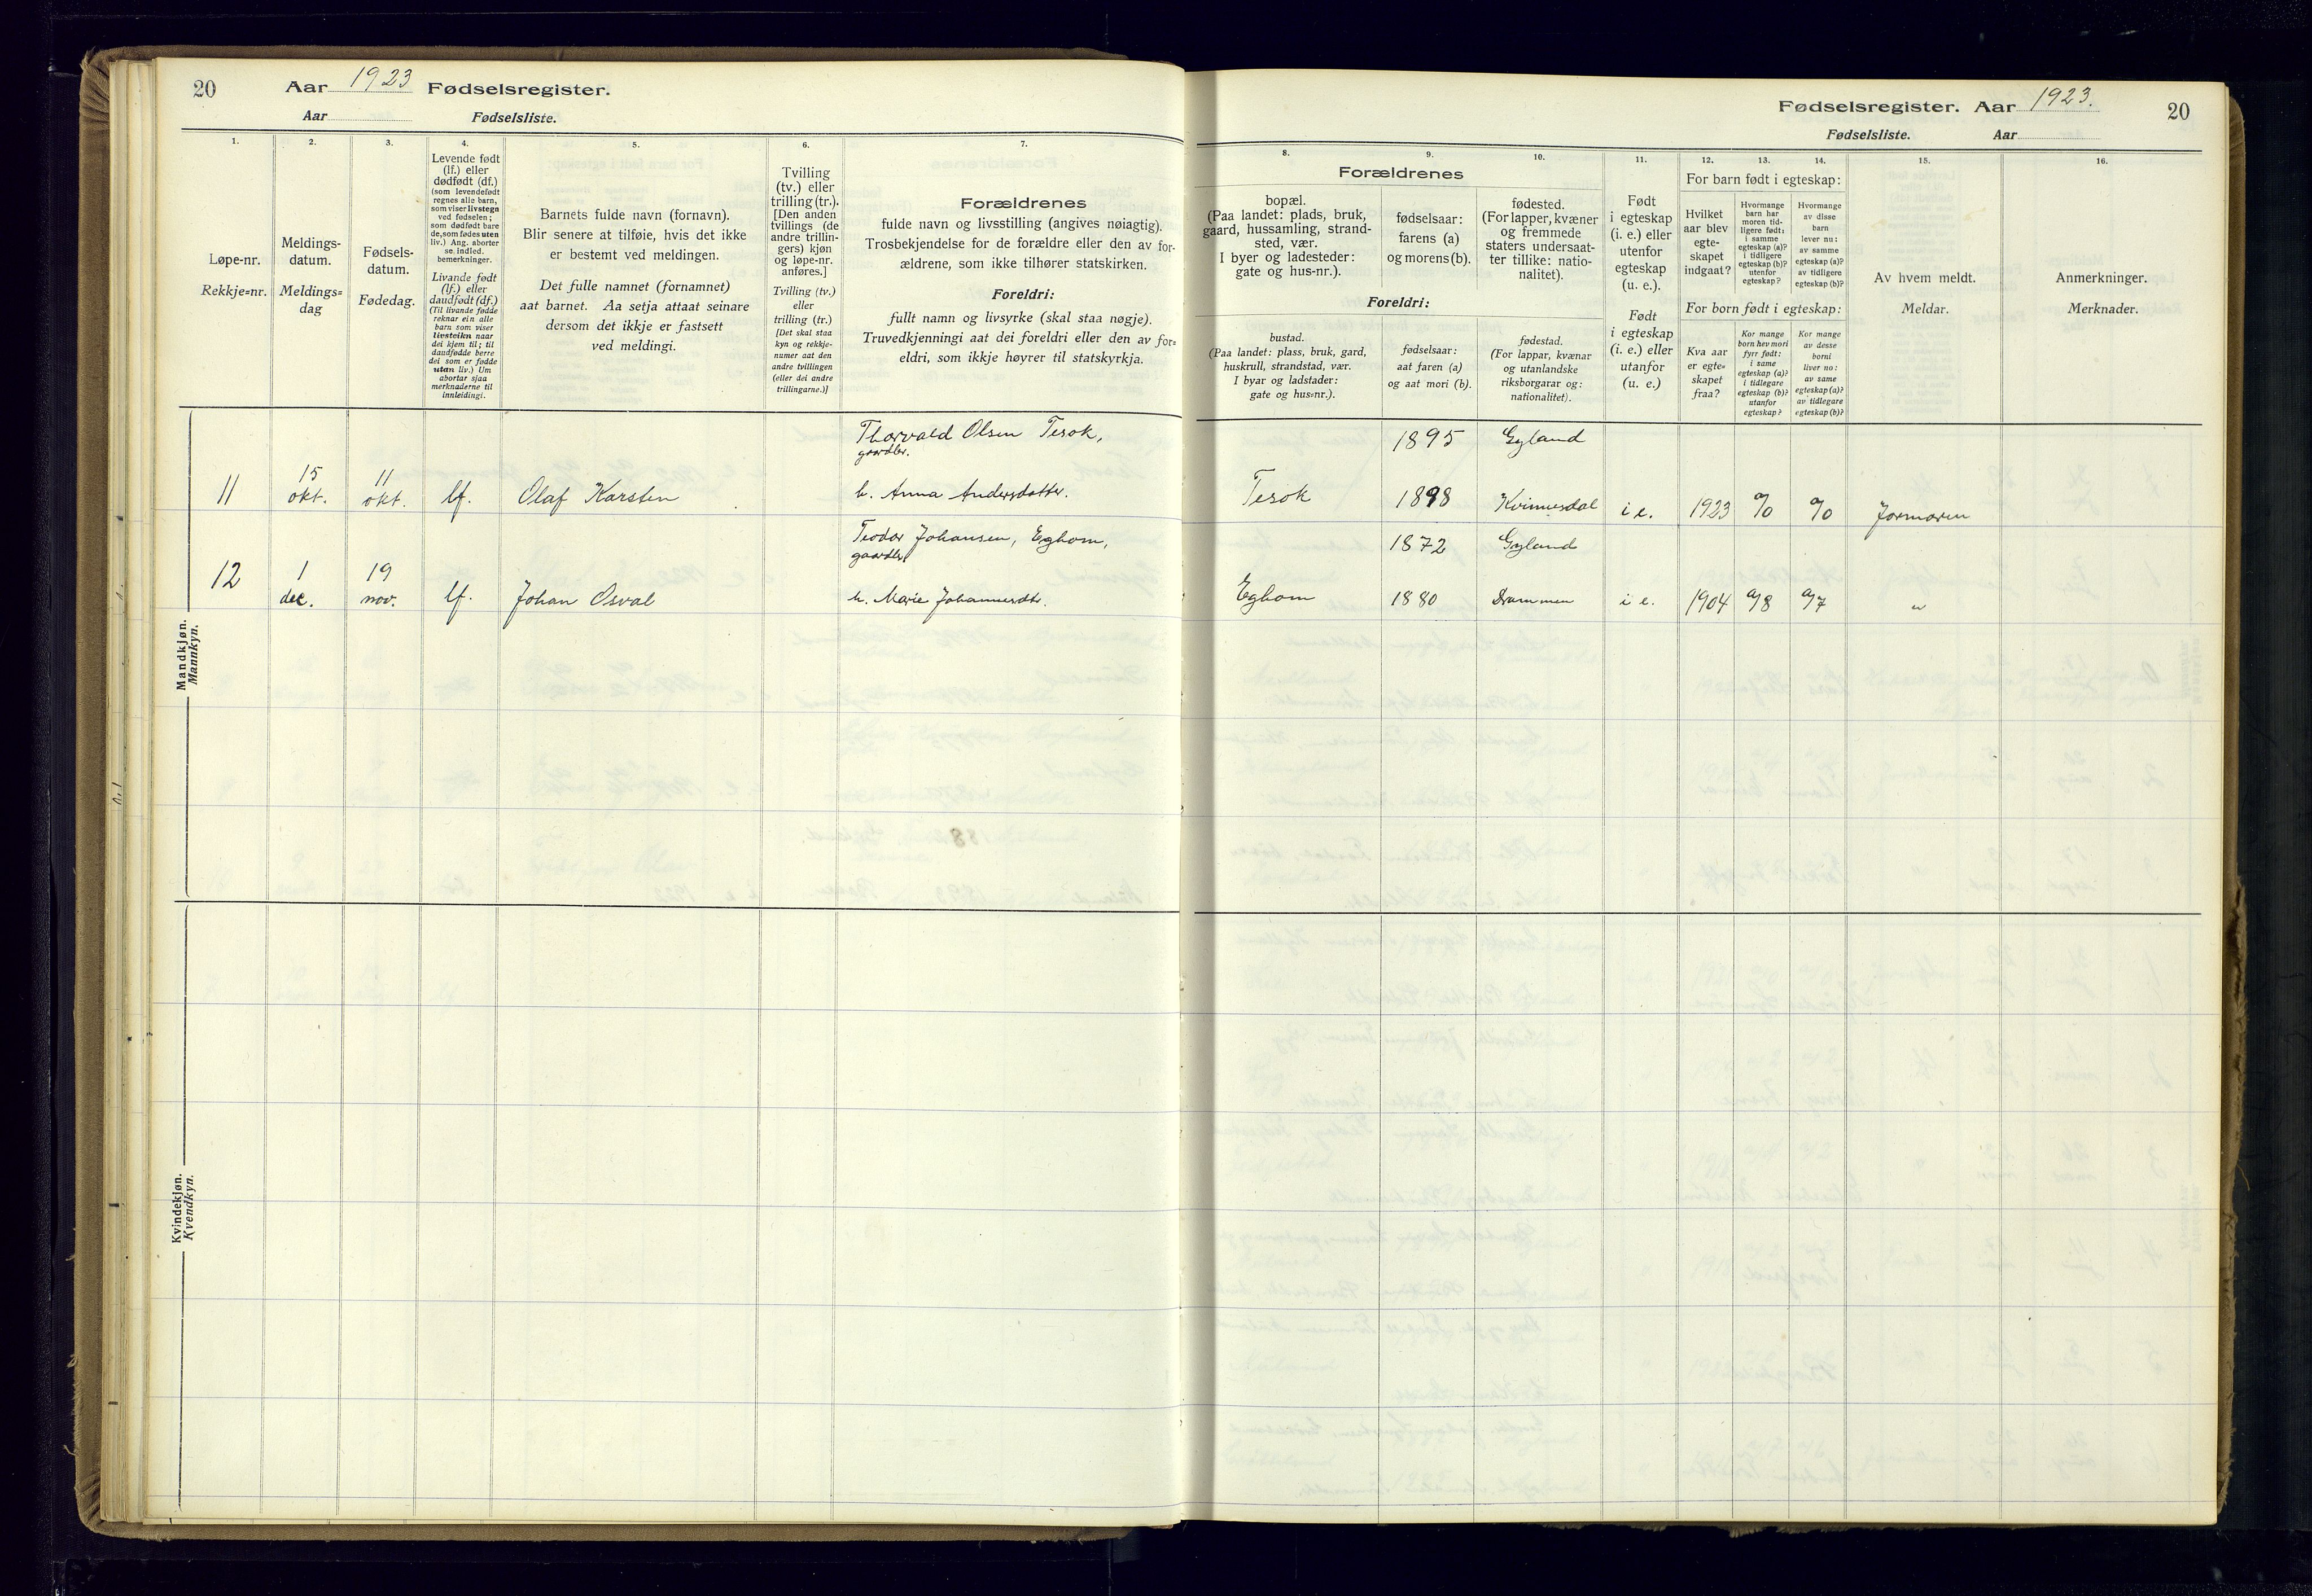 20 Aar 1923 Fødselsregister.
Aar Fødselsliste.
Fødselsregister. Aar 1923. 20
Fødselsliste. Aar
1.
Løpe-nr.
Rekkje=nr.
2.
Meldings-
datum.
Meldings=
dag
3.
Fødsels-
datum.
Fødedag.
4.
Levende født
(lf.) eller
dødfødt (df.)
(som levendefødt
regnes alle barn,
som viser livstegn
ved fødselen;
som dødfødt bare
de, som fødes uten
liv.) Ang. aborter
se indled.
bemerkninger.
Livande født
(lf.) eller
daudfødt (df.)
(Til livande fødde
reknar ein alle
barn som viser
livsteikn naar
dei kjem til; til
daudfødde berre
dei som er fødde
utan liv.) Um
abortar sjaa
merknaderne til
innleidingi.
5.
Barnets fulde navn (fornavn).
Blir senere at tilføie, hvis det ikke
er bestemt ved meldingen.
Det fulle namnet (fornamnet)
aat barnet. Aa setja attaat seinare
dersom det ikkje er fastsett
ved meldingi.
6.
Tvilling
(tv.) eller
trilling (tr.).
[Den anden
tvillings (de
andre trillin-
gers) kjøn
og løpe-nr.
anføres.]
Tvilling (tv.)
eller
trilling (tr.)
[Det skal staa
kyn og rekkje-
numer aat den
andre tvillingen
(eller dei andre
trillingarne.)]
7.
Forældrenes
fulde navn og livsstilling (angives nøiagtig).
Trosbekjendelse for de forældre eller den av for-
ældrene, som ikke tilhører statskirken.
Foreldri:
fullt namn og livsyrke (skal staa nøgje).
Truvedkjenningi aat dei foreldri eller den av for=
eldri, som ikkje høyrer til statskyrkja.
8.
Forældrenes
bopæl.
(Paa landet: plads, bruk,
gaard, hussamling, strand-
sted, vær.
I byer og ladesteder:
gate og hus-nr.).
Foreldri:
bustad.
(Paa landet: plass, bruk, gard,
huskrull, strandstad, vær.
I byar og ladstader:
gate og hus=nr.).
9.
fødselsaar:
farens (a)
og morens (b).
fødselsaar:
aat faren (a)
og aat mori (b).
10.
fødested.
(For lapper, kvæner
og fremmede
staters undersaat-
ter tillike: natio-
nalitet).
fødestad.
(For lappar, kvænar
og utanlandske
riksborgarar og:
nationalitet).
11.
Født
i egteskap
(i. e.) eller
utenfor
egteskap
(u. e.).
Født
i egteskap
(i. e.) eller
utanfor
(u. e.)
12. 13. 14.
For barn født i egteskap:
Hvilket
aar blev
egte-
skapet
indgaat?
Hvormange
barn har
moren tid-
ligere født:
i samme
egteskap (a)?
i tidligere
egteskap (b)?
utenfor
egteskap?
Hvormange
av disse
barn
lever nu:
av samme
egteskap (a)?
av tidligere
egteskap (b)?
For born født i egteskap:
Kva aar
er egte=
skapet
fraa?
Kor mange
born hev mori
fyrr født:
i same
egteskap (a)?
i tidlegare
egteskap (b)?
utanfor
egteskap?
Kor mange
av desse
borni
liver no:
av same
egteskap (a)?
av tidlegare
egteskap (b)?
15.
Av hvem meldt.
Meldar.
16.
Anmerkninger.
Merknader.
Mandkjøn.
Mannkyn.
Thorvald Olsen Tesok, 1895 Gyland
gaardbr.
11 15 okt. 11 okt. lf. Olaf Karsten h. Anna Andersdatter. Tesok 1898 Kvinnesdal i e. 1923 a/0 a/0 Jormoren
Teodor Johansen, Eghom, 1872 Gyland
gaardbr.
12 1 dec. 19 nov. lf. Johan Osval h. Marie Johannesdtr. Eghom 1880 Drammen i e. 1904 a/8 a/7 "
Kvindekjøn.
Kvendkyn.